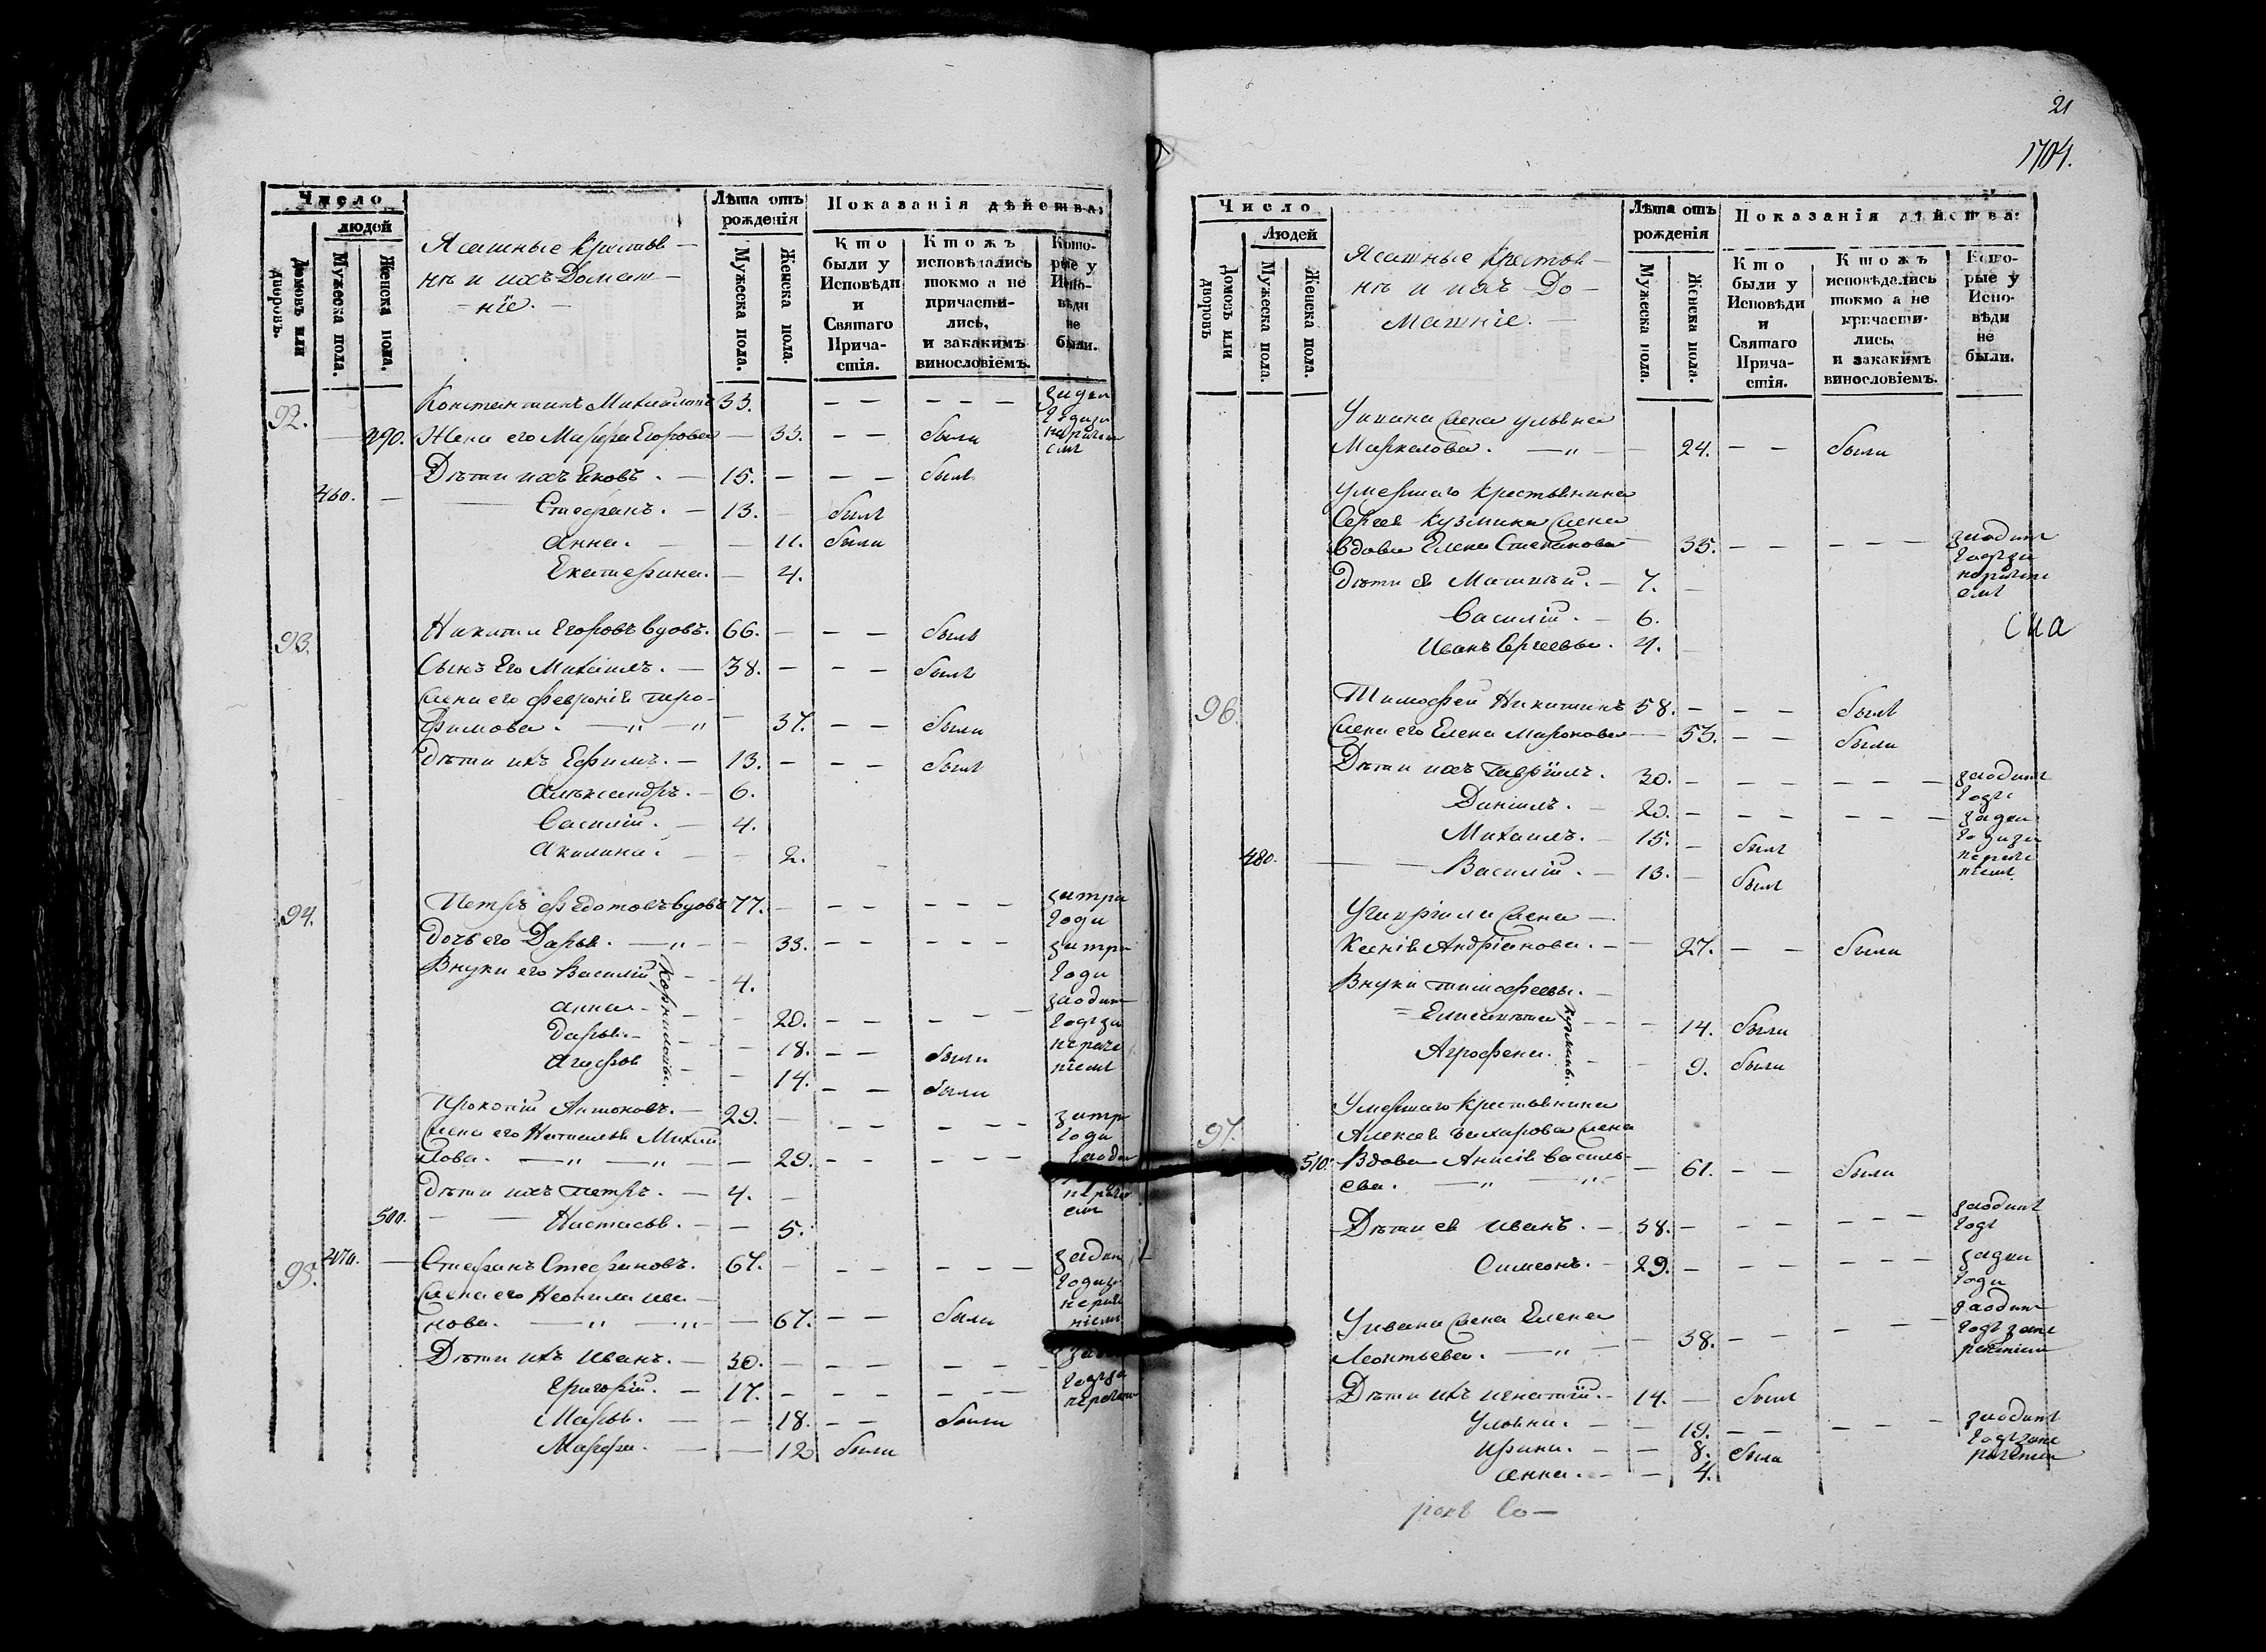 Число
людей
Домовъ или дворовъ.
Мужеска пола.
Женска пола.
Ясашные крестья-
нѣ и ихъ Домаш-
-ніе. -
Лѣта отъ рожденія
Мужеска пола.
Женска пола.
Показанія дѣйства:
Кто были у Исповѣди и Святаго Прича-стія.
Ктожъ исповѣдались токмо а не причасти-лись, и закакимъ винословіемъ.
Кото-рые у Испо-вѣди не были.
92. Константинъ Михайловъ 33. — — — — —
290. Жена его Марфа Егорова — 33. — — были
Дѣти ихъ Яковъ. — 15. — — — былъ
460. — Стефанъ. — 13. — былъ
Анна. — — 11. были
Екатерина. — 4.
93. Никита Егоровъ вдовъ. 66. — — — былъ
Сынъ Его Михаилъ. — 38. — — — былъ
Жена его Феврония Тро-
фимова. — " — " — 37. — — были
Дѣти ихъ Ефимъ. — 13. — — — былъ
Александръ. — 6.
Василій. — 4.
Акилина. — — 2.
94. Петръ Федотовъ вдовъ 77. — — — — — — затри года
Дочь его Дарья. — " — — 33. — — — — — затри года
Внуки его Василій — 4.
Корниловы.
Анна. — — 20. — — — — — заодинъ
Дарья. — — 18. — — были
Агафья — — 14. — — были
Прокопій Антоновъ. — 29. — — — — — —
Жена его Наталья Михаи
лова. — " — " — — 29. — — — — —
Дѣти ихъ Петръ. — 4. —
500. — — Настасья. — — 5.
95. 470. — Стефанъ Стефановъ. 67. — — — — — —
Жена его Неонила Ива —
нова. — " — " — — 67. — — были
Дѣти ихъ Иванъ. — 30. — — — — — —
Григорій. — 17. — — — — — —
Марья. — — 18. — — были
Марфа. — — 12 были
21
1704.
Число
Людей
Домовъ или дворовъ
Мужеска пола.
Женска пола.
Ясашные крестья-
нѣ и ихъ До-
машніе. —
Лѣта отъ рожденія
Мужеска пола.
Женска пола.
Показанія дѣйства:
Кто были у Исповѣди и Святаго Прича-стія.
Ктожъ исповѣдались токмо а не причасти-лись, и закакимъ винословіемъ.
Кото-рые у Испо-вѣди не были.
Уивана жена Ульяна
Маркелова. — " — — 24. — — были
Умершаго крестьянина
Сергея Кузмина жена
вдова Елена Степанова — 35. — — — — — заодинъ
Дѣти ея Матвѣй. — 7. —
Василій. — 6.
Иванъ Сергеевы. 4. —
96. Тимофей Никитинъ 58. — — — былъ
Жена его Елена Миронова — 53. — — были
Дѣти ихъ Гавріилъ. 30. — — — — — — заодинъ годъ
Даніилъ. — 20. — — — — — —
Михаилъ. — 15. — былъ
480. — — Василій. — 13. — былъ
Жена —
Ксенія Андріянова. — — 27. — — были
Внуки Тимофеевы. —
= Елисавета — — — 14. были
Кузмины.
Агрофена. — — 9. были
97. Умершаго крестьянина
Алексея Захарова жена
510. Вдова Анисія Василь-
ева. — " — " — 61. — — были
Дѣти ея Иванъ. — 38. — — — — — — заодинъ годъ
Симеонъ. — 29. — — — — — — задва года
Уивана жена Елена
Леонтьева. — " — — 38. — — — — — заодинъ
Дѣти ихъ Игнатій. — 14. — былъ
Ульяна. — — 19. — — — — — заодинъ
Ирина. — — 8. была
Анна. — — 4.